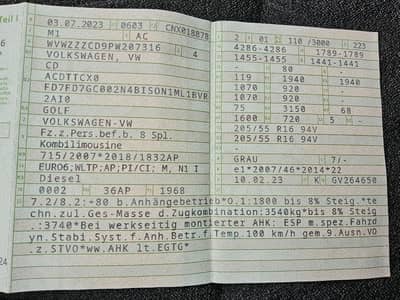 Teil I
03.07.2023 0603 CNX018078
M1 AC
WVWZZZCD9PW207316 4
VOLKSWAGEN, VW
CD
ACDTTCX0
FD7FD7GC002N4BISON1ML1BVR
2AI0
GOLF
VOLKSWAGEN-VW
Fz.z.Pers.bef.b. 8 Spl.
Kombilimousine
715/2007*2018/1832AP
EURO6;WLTP;AP;PI/CI; M, N1 I
Diesel
0002 36AP 1968
2 01 110 /3000 223
4286-4286 1789-1789
1455-1455 1441-1441
- 80 -
119 1940 1940
1070 920 -
1070 920 -
75 3150 68
1600 720 5 -
205/55 R16 94V
205/55 R16 94V
-
GRAU 7/-
e1*2007/46*2014*22
10.02.23 K GV264650
7.2/8.2:+80 b.Anhängebetrieb*O.1:1800 bis 8% Steig.*te
chn.zul.Ges-Masse d.Zugkombination:3540kg*bis 8% Steig
.:3740*Bei werkseitig montierter AHK: ESP m.spez.Fahrd
yn.Stabi.Syst.f.Anh.Betr.f.Temp.100 km/h gem.9.Ausn.VO
z.STVO*ww.AHK lt.EGTG*